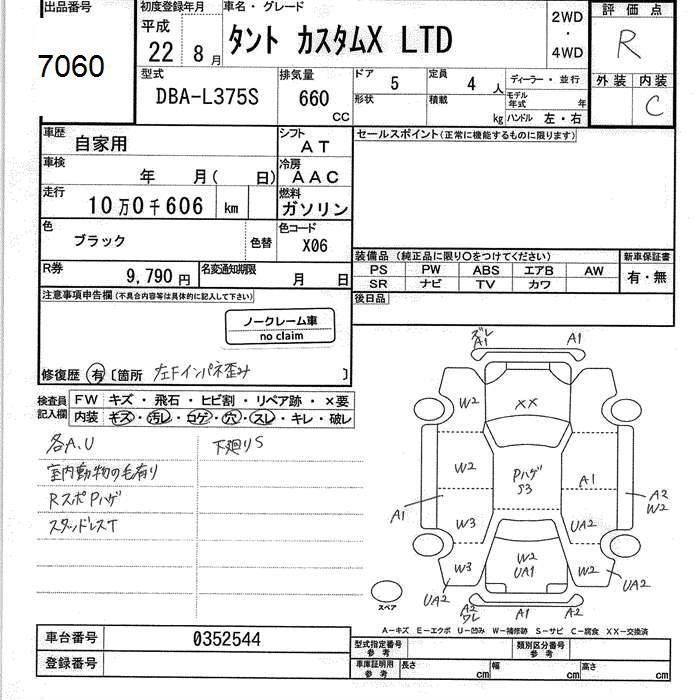 出品番号
7060
初度登録年月
平成
22年 8月
車名・グレード
タント カスタムX LTD
2WD
・
4WD
評価点
R
外装 内装
C
型式
DBA-L375S
排気量
660
CC
ドア
5
定員
4人
形状
積載
kg
ディーラー・並行
モデル
年式
年
ハンドル 左・右
車歴
自家用
シフト
AT
車検
年 月( 日)
冷房
AAC
走行
10万0千606 km
燃料
ガソリン
色
ブラック
色替
色コード
X06
R券
9,790円
名変通知期限
月 日
セールスポイント(正常に機能するものに限ります)
装備品 (純正品に限り○をつけてください)
PS PW ABS エアB AW
SR ナビ TV カワ
新車保証書
有・無
後日品
注意事項申告欄(不具合内容等は具体的に記入して下さい)
ノークレーム車
no claim
修復歴 有 〔箇所 左Fインパネ歪み 〕
検査員
記入欄
FW キズ・飛石・ヒビ割・リペア跡・×要
内装 キズ・汚レ・コゲ・穴・スレ・キレ・破レ
各A.U
下廻りS
室内動物の毛有り
RスポPハゲ
スタッドレスT
ズレ
A1
A1
W2
XX
W2
Pハゲ
S3
A1
A1
A2
W2
W3
UA2
W3
W2
UA1
W2
UA2
UA2
スペア
A2
ワレ
A1
A2
A-キズ E-エクボ U-凹み W-補修跡 S-サビ C-腐食 XX-交換済
車台番号
0352544
登録番号
型式指定番号
参考
類別区分番号
参考
車庫証明用
参考
長さ
cm
幅
cm
高さ
cm